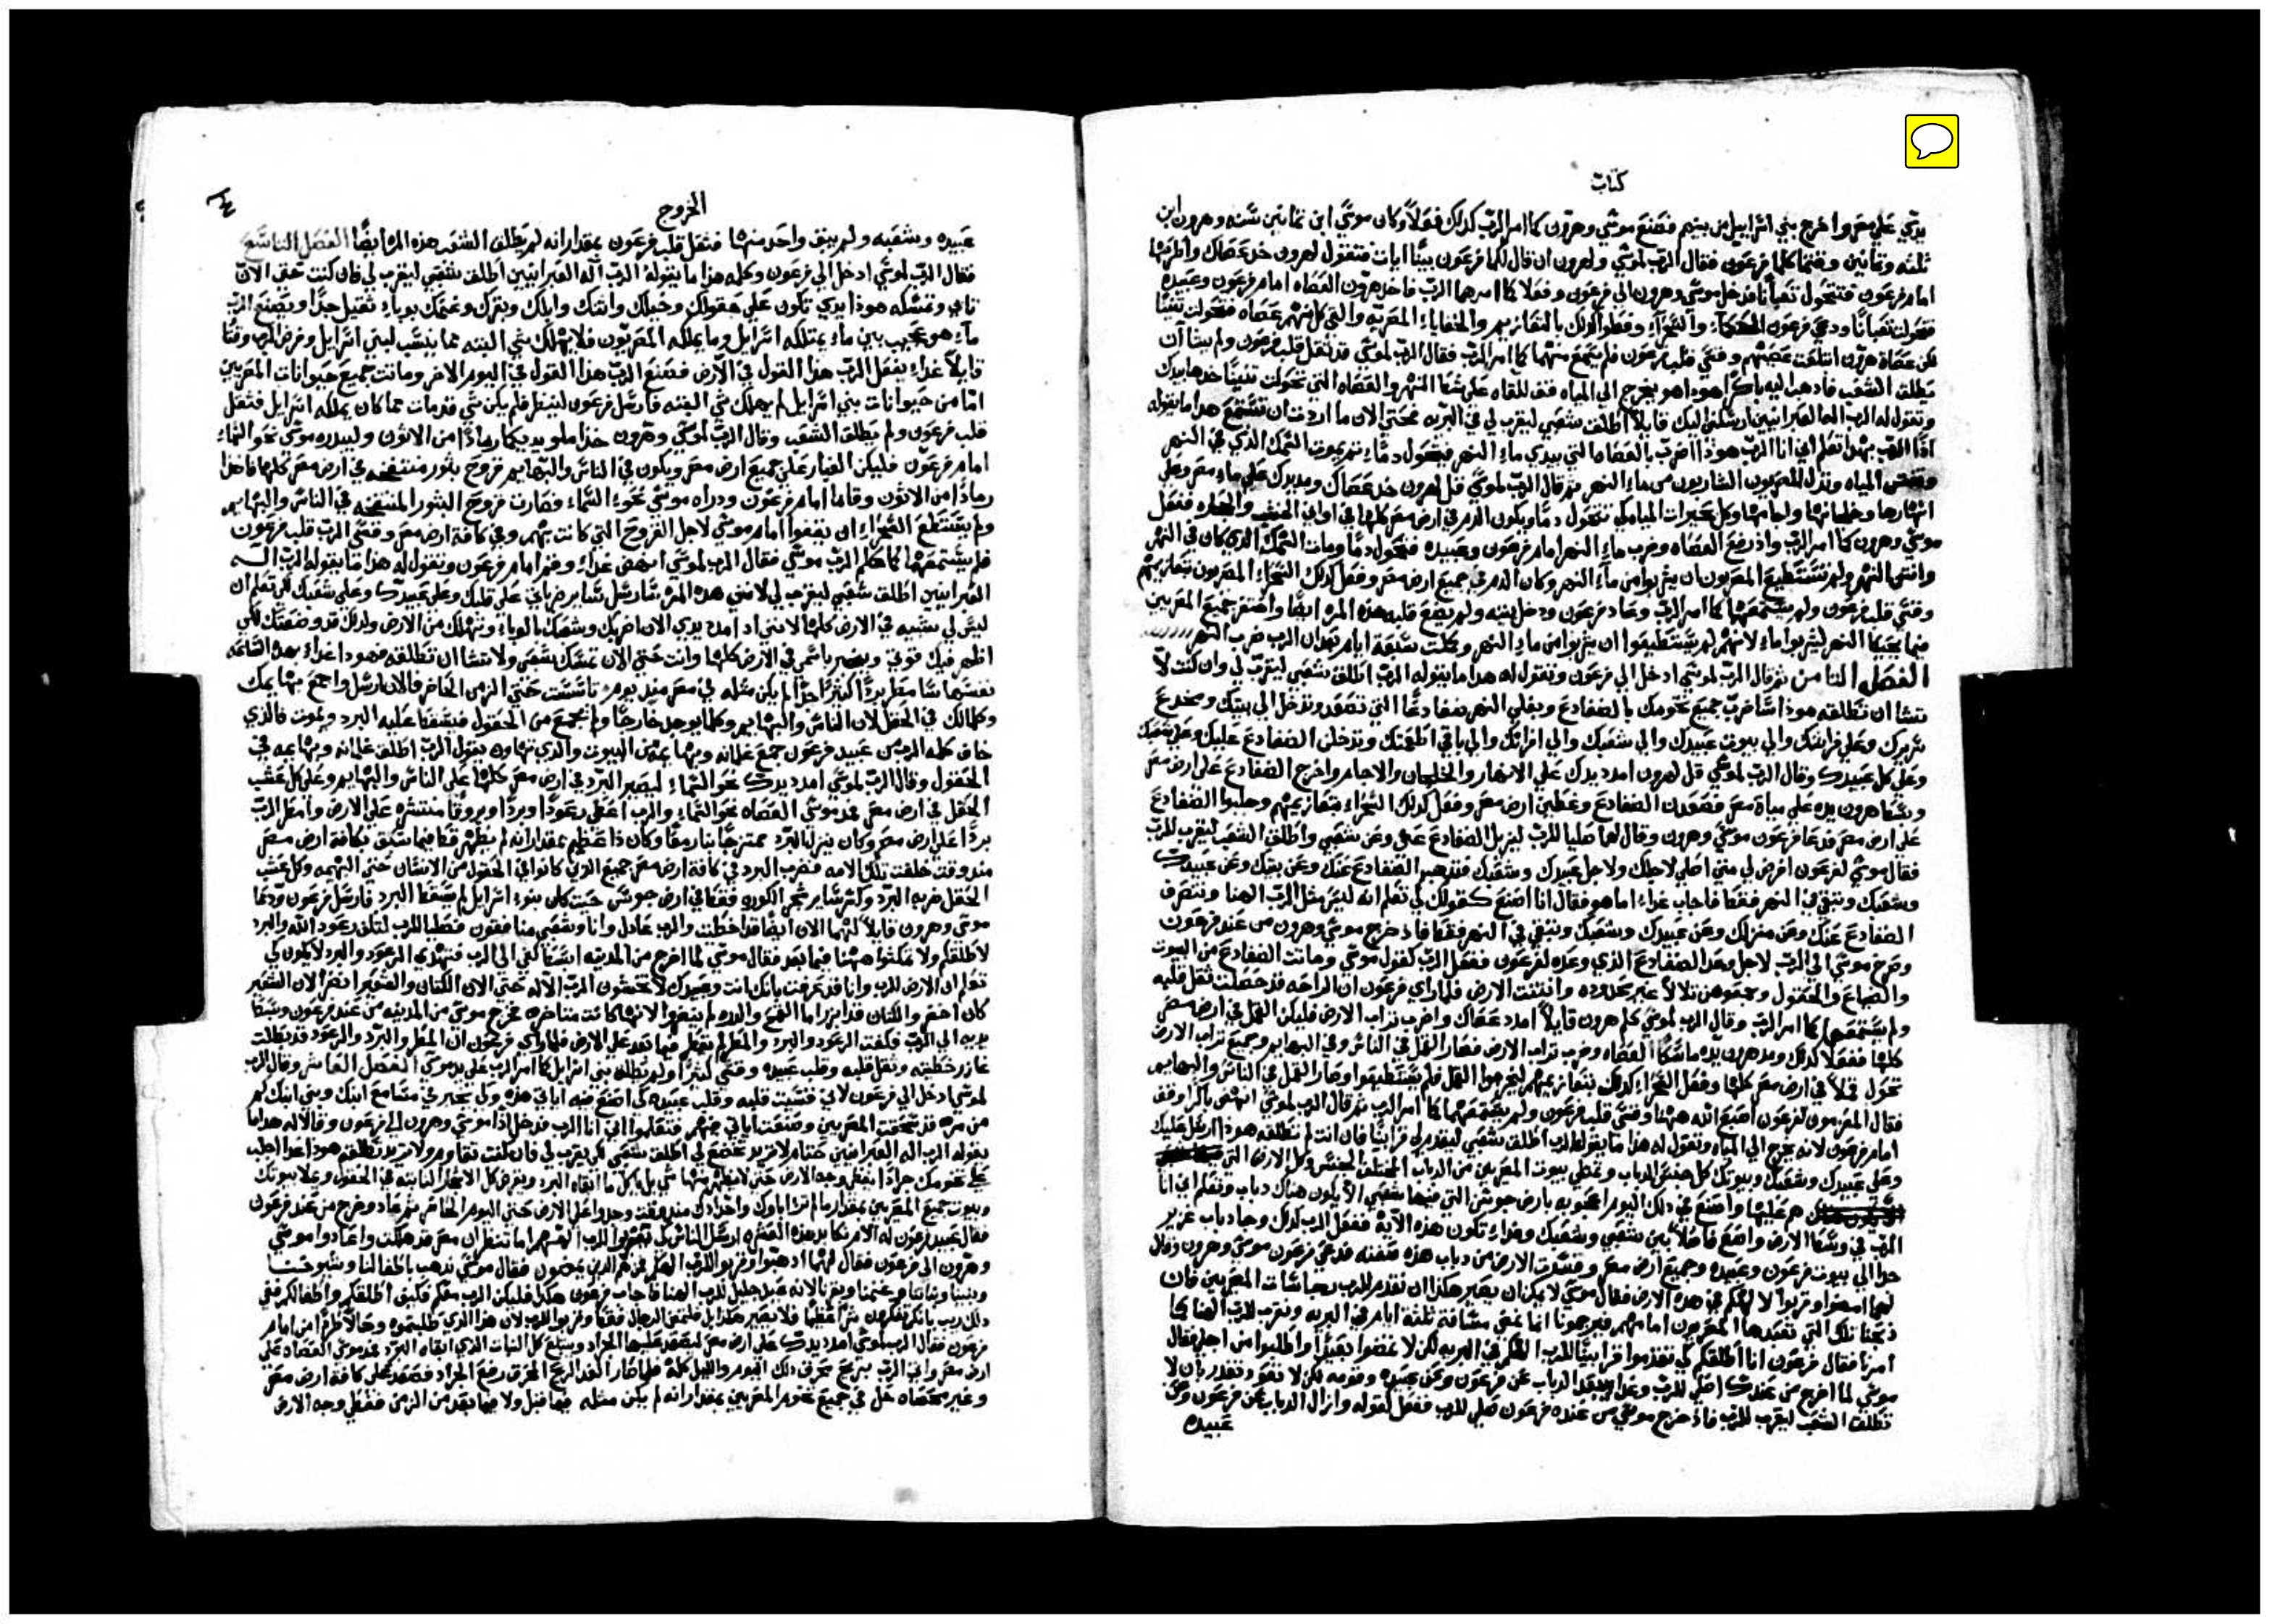 كتاب
يدي علي مصر واخرج بني اسراييل من بينهم فصنع موسي وهرون كما امر الرب كذلك فعلا وكان موسي ابن ثمانين سنه وهرون ابن
ثلثه وثمانين وقتما كلما فرعون فقال الرب لموسي ولهرون ان قال لكما فرعون بينا ايات فتقول لهرون خذ عصاك واطرحها
امام فرعون فتتحول ثعبانا فدخل موسي وهرون الي فرعون وفعلا كما امرهما الرب فاخذ هرون العصاه امام فرعون وعبيده
فتحولت ثعبانا ودعي فرعون الحكماء والسحراء وفعلوا كذلك بالتعازيم والخفايا المصريه والقي كل منهم عصاه فتحولت تنينا
لكن عصاة هرون ابتلعت عصيهم وقسي قلب فرعون فلم يسمع منهما كما امر الرب فقال الرب لموسي قد ثقل قلب فرعون ولم يشا ان
يطلق الشعب فاذهب اليه باكرا هوذا هو يخرج الي المياه فقف للقاه علي شط النهر والعصاه التي تحولت تنينا خذها بيدك
وتقول له الرب اله العبرانيين ارسلني اليك قايلا اطلق شعبي ليقرب لي في البريه فحتي الان ما اردت ان تسمع هذا ما يقوله
اذا الرب بهذا تعلم اني انا الرب هوذا اضرب بالعصاه التي بيدي ماء النهر فيتحول دماء ثم يموت السمك الذي في النهر
المياه المصريون الشاربون من ماء النهر ثم قال الرب لموسي قل لهرون خذ عصاك ومد يدك علي ماء مصر وعلي
انهارها وخلجانها واجامها وكل المياه كي تتحول دما ويكون الدم في ارض مصر كلها في اواني الخشب والحجاره ففعل
موسي وهرون كما امر الرب واذ رفع العصاه وضرب ماء النهر امام فرعون وعبيده فتحول دما ومات السمك الذي كان في النهر
وانتن النهر ولم تستطيع المصريون ان يشربوا من ماء النهر وكان الدم في جميع ارض مصر وفعل كذلك السحراء المصريون بتعازيمهم
وقسي قلب فرعون ولم يسمعهما كما امر الرب وعاد فرعون ودخل بيته ولم يضع قلبه هذه المره ايضا واحتفر جميع المصريين
فيما يحيط النهر ليشربوا ماء لانهم لم يستطيعوا ان يشربوا من ماء النهر وكملت سبعة ايام بعد ان الرب ضرب النهر
الفصل الثامن ثم قال الرب لموسي ادخل الي فرعون وتقول له هذا ما يقوله الرب اطلق شعبي ليقرب لي وان كنت لا
تشا ان تطلقه هوذا اضرب جميع تخومك بالضفادع ويغلي النهر ضفادعا التي تصعد وتدخل الي بيتك ومخدع
سريرك وعلي فراشك والي بيوت عبيدك والي شعبك والي افرانك والي باقي اطعمتك وتدخلن الضفادع عليك وعلي شعبك
وعلي كل عبيدك وقال الرب لموسي قل لهرون امدد يدك علي الانهار والخلجان والاجام واخرج الضفادع علي ارض مصر
وبسط هرون يده علي مياة مصر فصعدت الضفادع وغطين ارض مصر وفعل كذلك السحراء بتعازيمهم وجلبوا الضفادع
علي ارض مصر فدعا فرعون موسي وهرون وقال لهما صليا للرب ليزيل الضفادع عني وعن شعبي واطلق الشعب ليقرب للرب
فقال موسي لفرعون افرض لي متي اصلي لاجلك ولاجل عبيدك وشعبك فتذهب الضفادع عنك وعن بيتك وعن عبيدك
وشعبك وتبقي في النهر فقط فاجاب غداء اما هو فقال انا اصنع كقولك لكي تعلم انه ليس مثل الرب الهنا وتنصرف
الضفادع عنك وعن منزلك وعن عبيدك وشعبك وتبقي في النهر فقط فاذ خرج موسي وهرون من عند فرعون
وصرخ موسي الي الرب لاجل وعد الضفادع الذي وعده لفرعون ففعل الرب كقول موسي وماتت الضفادع من البيوت
والضياع والحقول وجمعوهن تلالا غير محدوده وانتنت الارض فلما راي فرعون ان الراحه قد حصلت ثقل قلبه
ولم يسمعهما كما امر الرب وقال الرب لموسي كلم هرون قايلا امدد عصاك واضرب تراب الارض فليكن القمل في ارض مصر
كلها ففعلا كذلك ومد هرون يده ماسكا العصاه وضرب تراب الارض فصار القمل في الناس وفي البهايم وجميع تراب الارض
تحول قملا في ارض مصر كلها وفعل السحراء كذلك بتعازيمهم ليخرجوا القمل فلم يستطيعوا وصار القمل في الناس والبهايم
فقال المعزمون لفرعون اصبع الله ههنا وقسي قلب فرعون ولم يسمعهما كما امر الرب ثم قال الرب لموسي انهض باكرا وقف
امام فرعون لانه يخرج الي المياه وتقول له هذا ما يقوله الرب اطلق شعبي ليقدم لي قرابينا فان انت لم تطلقه هوذا ارسل عليك
وعلي عبيدك وشعبك وبيوتك كل جنس الدباب وتمتلي بيوت المصريين من الدباب المختلف الجنس وكل الارض التي
هم عليها واصنع في ذلك اليوم اعجوبه بارض جوشن التي فيها شعبي الا يكون هناك دباب وتعلم اني انا
الرب في وسط الارض واضع فاصلا بين شعبي وشعبك وغداء تكون هذه الايه ففعل الرب كذلك وجا دباب غزير
جدا الي بيوت فرعون وعبيده وجميع ارض مصر وفسدت الارض من دباب هذه صفته فدعي فرعون موسي وهرون وقال
لهما امضوا وقربوا لالهكم في هذه الارض فقال موسي لا يمكن ان يصير هكذا ان نقدم للرب نجاسات المصريين فان
ذبحنا تلك التي تعبدها المصريون امامهم فيرجمونا انما نمضي مسافة ثلثة ايام في البريه ونقرب للرب الهنا كما
امرنا فقال فرعون انا اطلقكم كي تقدموا قرابينا للرب الهكم في البريه لكن لا تمضوا بعيدا واطلبوا من اجلي فقال
موسي لما اخرج من عندك اصلي للرب وغدا يبتعد الدباب عن فرعون وعن عبيده وقومه لكن لا تعود وتغدر بان لا
تطلق الشعب ليقرب للرب فاذ خرج موسي من عند فرعون صلي للرب ففعل كقوله وازال الدباب عن فرعون وعن
عبيده
الخروج
عبيده وشعبه ولم يبق واحد منها فثقل قلب فرعون بمقدار انه لم يطلق الشعب هذه المره ايضا الفصل التاسع
فقال الرب لموسي ادخل الي فرعون وكلمه هذا ما يقوله الرب اله العبرانيين اطلق شعبي ليقرب لي فان كنت حتي الان
تابي وتمسكه هوذا يدي تكون علي حقولك وخيلك واتنك وابلك وبقرك وغنمك بوباء ثقيل جدا ويصنع الرب
ماء هو عجيب بين ماء يمتلكه اسرايل وما يملكه المصريون فلا يهلك شي البته مما ينسب لبني اسرايل وفرض الرب وقتا
قايلا غداء يفعل الرب هذا القول في الارض فصنع الرب هذا القول في اليوم الاخر وماتت جميع حيوانات المصريين
اما من حيوانات بني اسرايل لم يهلك شي البته فارسل فرعون لينظر فلم يكن شي قد مات مما كان يملكه اسرايل فثقل
قلب فرعون ولم يطلق الشعب وقال الرب لموسي وهرون خذا ملو يديكما رمادا من الاتون وليبدره موسي نحو السماء
امام فرعون فليكن الغبار علي جميع ارض مصر ويكون في الناس والبهايم قروح بثور منتفخه في ارض مصر كلها فاخذا
رمادا من الاتون وقاما امام فرعون ودراه موسي نحو السماء فصارت قروح البثور المنتفخه في الناس والبهايم
ولم يستطع السحراء ان يقفوا امام موسي لاجل القروح التي كانت بهم وفي كافة ارض مصر وقسي الرب قلب فرعون
فلم يسمعهما كما كلم الرب موسي فقال الرب لموسي انهض غداء وقم امام فرعون وتقول له هذا ما يقوله الرب اله
العبرانيين اطلق شعبي ليقرب لي لانني هذه المره سارسل ساير ضرباتي علي قلبك وعلي عبيدك وعلي شعبك لكي تعلم ان
ليس لي شبيه في الارض كلها لانني اذ امدد يدي الان اضربك وشعبك بالوباء وتهلك من الارض ولذلك قد وضعتك لكي
اظهر فيك قوتي ويخبر باسمي في الارض كلها وانت حتي الان تمسك شعبي ولا تشا ان تطلقه فهوذا غداء بهذه الساعه
نفسها سامطر بردا كثيرا جدا لم يكن مثله في مصر منذ يوم تاسست حتي الزمن الحاضر فالان ارسل واجمع بهايمك
وكلما لك في الحقل لان الناس والبهايم وكلما يوجد خارجا ولم يجمع من الحقول فيسقط عليه البرد ويموت فالذي
خاف كلمه الرب من عبيد فرعون جمع غلمانه وبهايمه الي البيوت والذي تهاون بقول الرب اطلق غلمانه وبهايمه في
الحقول وقال الرب لموسي امدد يدك نحو السماء ليصير البرد في ارض مصر كلها علي الناس والبهايم وعلي كل عشب
الحقل في ارض مصر فمد موسي العصاه نحو السماء والرب اعطي رعودا وبردا وبروقا منتشره علي الارض وامطر الرب
بردا علي ارض مصر وكان ينزل البرد ممتزجا بنار معا وكان ذا عظم بمقدار انه لم يظهر قط فيما سبق بكافة ارض مصر
منذ وقت خلقت تلك الامه فضرب البرد في كافة ارض مصر جميع الذي كانوا في الحقول من الانسان حتي البهيمه وكل عشب
الحقل ضربه البرد وكسر ساير شجر الكوره فقط في ارض جوشن حيث كان بنوء اسرايل لم يسقط البرد فارسل فرعون ودعا
موسي وهرون قايلا لهما الان ايضا قد اخطيت والرب عادل وانا وشعبي منافقون فصليا للرب لتكف رعود الله والبرد
لاطلقكم ولا تمكثوا ههنا فيما بعد فقال موسي لما اخرج من المدينه ابسط كفي الي الرب فتهدي الرعود والبرد لا يكون كي
تعلم ان الارض للرب وانا قد عرفت بانك انت وعبيدك لا تخشون الرب الاله حتي الان الكتان والشعير انضرا لان الشعير
كان اخضر والكتان قد ابزر اما القمح والدره لم ينضروا لانها كانت متاخره فخرج موسي من المدينه من عند فرعون وبسط
يديه الي الرب فكفت الرعود والبرد والمطر لم يقطر فيما بعد علي الارض فلما راي فرعون ان المطر والبرد والرعود قد بطلت
عا زد خطيته وثقل قلبه وقلب عبيده وقسي كثيرا ولم يطلق بني اسرايل كما امر الرب علي يد موسي الفصل العاشر وقال الرب
لموسي ادخل الي فرعون لاني قسيت قلبه وقلب عبيده كي اصنع فيه اياتي هذه ولكي تخبر في مسامع ابنك وبني ابنك كم
من مره قد سحقت المصريين وصنعت اياتي فيهم فتعلموا اني انا الرب فدخل اذا موسي وهرون الي فرعون وقالا له هذا ما
يقوله الرب اله العبرانيين حتام لا تريد تخضع لي اطلق شعبي كي يقرب لي فان كنت تقاوم ولا تريد تطلقه هوذا غدا اجلب
علي تخومك جرادا يغطي وجه الارض حتي لا يظهر منها شي بل ياكل ما ابقاه البرد ويقرض كل الاشجار النابته في الحقول ويملا بيوتك
وبيوت جميع المصريين بمقدار ما لم تر اباوك واجدادك منذ وقت وجدوا علي الارض حتي اليوم الحاضر ثم عاد وخرج من عند فرعون
فقال عبيد فرعون له الام نكابد هذه العثره ارسل الناس كي يقربوا للرب الههم اما تنظر ان مصر قد هلكت واعادوا موسي
وهرون الي فرعون فقال لهما اذهبوا وقربوا للرب الهكم فمن هم الذين يمضون فقال موسي نذهب باطفالنا وشيوخنا
وبنينا وبناتنا وغنمنا وبقرنا لانه عيد جليل للرب الهنا فاجاب فرعون هكذا فليكن الرب معكم فكيف اطلقكم واطفالكم فمن
ذلك ريب بانكم تفكرون شرا عظيما فلا يصير هكذا بل فلتمض الرجال فقط وقربوا للرب لان هذا الذي طلبتموه وحالا طردا من امام
فرعون فقال الرب لموسي امدد يدك علي ارض مصر ليصعد عليها الجراد ويبتلع كل النبات الذي ابقاه البرد فمد موسي العصاه علي
ارض مصر واتي الرب بريح محرق ذلك اليوم والليل كله فلما صار الغد الريح المحرق رفع الجراد فصعد علي كافة ارض مصر
حل في جميع تخوم المصريين بمقدار انه لم يكن مثله فيما قبل ولا فيما بعد من الزمن فغطي وجه الارض